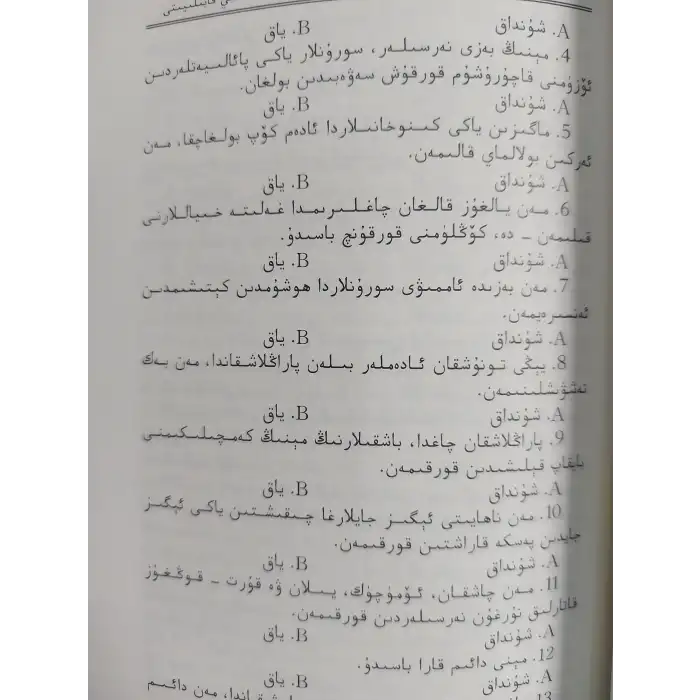 قابىلىيىتى
A. شۇنداق B. ياق
4. مېنىڭ بەزى نەرسىلەر، سورۇنلار ياكى پائالىيەتلەردىن
ئۆزۈمنى قاچۇرۇشۇم قورقۇش سەۋەبىدىن بولغان.
A. شۇنداق B. ياق
5. ماگىزىن ياكى كىنوخانىلاردا ئادەم كۆپ بولغاچقا، مەن
ئەركىن بولالماي قالىمەن.
A. شۇنداق B. ياق
6. مەن يالغۇز قالغان چاغلىرىمدا غەلىتە خىياللارنى
قىلىمەن - دە، كۆڭلۈمنى قورقۇنچ باسىدۇ.
A. شۇنداق B. ياق
7. مەن بەزىدە ئاممىۋى سورۇنلاردا ھوشۇمدىن كېتىشىمدىن
ئەنسىرەيمەن.
A. شۇنداق B. ياق
8. يېڭى تونۇشقان ئادەملەر بىلەن پاراڭلاشقاندا، مەن بەك
تەشۋىشلىنىمەن.
A. شۇنداق B. ياق
9. پاراڭلاشقان چاغدا، باشقىلارنىڭ مېنىڭ كەمچىلىكىمنى
بايقاپ قېلىشىدىن قورقىمەن.
A. شۇنداق B. ياق
10. مەن ناھايىتى ئېگىز جايلارغا چىقىشتىن ياكى ئېگىز
جايدىن پەسكە قاراشتىن قورقىمەن.
A. شۇنداق B. ياق
11. مەن چاشقان، ئۆمۈچۈك، يىلان ۋە قۇرت - قوڭغۇز
قاتارلىق نۇرغۇن نەرسىلەردىن قورقىمەن.
A. شۇنداق B. ياق
12. مېنى دائىم قارا باسىدۇ.
A. شۇنداق B. ياق
مەن دائىم